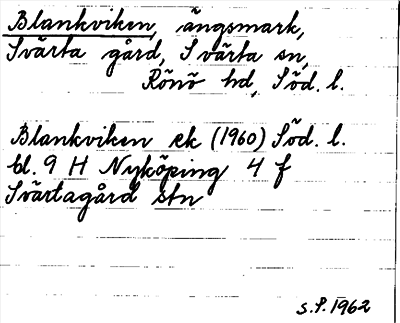 Blankviken, ängsmark,
Svärta gård, Svärta sn,
Rönö hd, Söd. l.
Blankviken ek (1960) Söd. l.
bl. 9 H Nyköping 4 f
Svärtagård stn
S.P. 1962